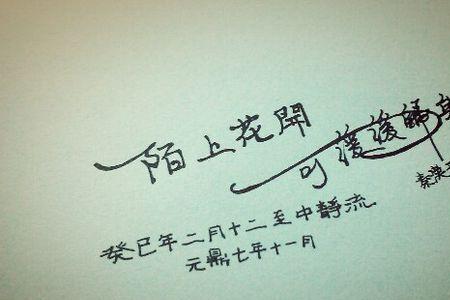 陌上花開
可緩緩歸矣
癸巳年二月十二至中靜流
元鼎七年十一月